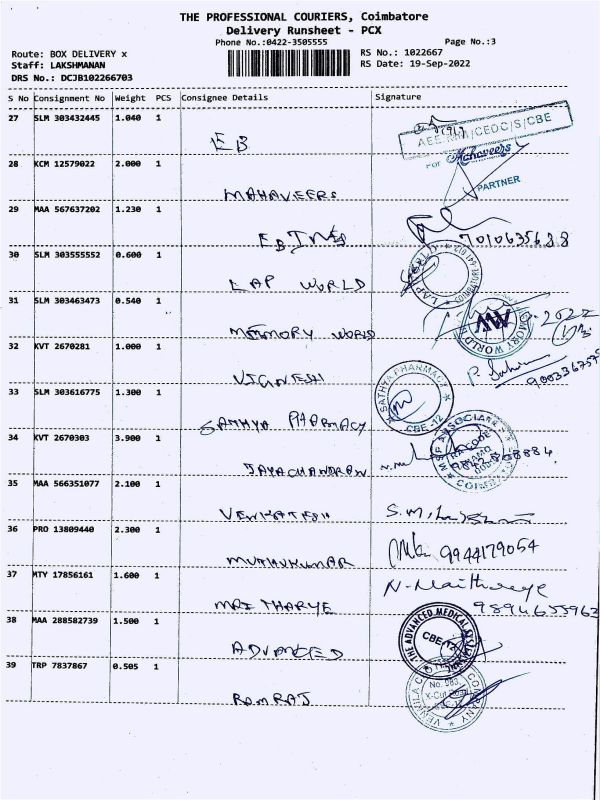 THE PROFESSIONAL COURIERS, Coimbatore
Delivery Runsheet - PCX
Phone No.:0422-3505555 Page No.:3
Route: BOX DELIVERY x RS No.: 1022667
Staff: LAKSHMANAN RS Date: 19-Sep-2022
DRS No.: DCJB102266703
S No Consignment No Weight PCS Consignee Details Signature
27 SLM 303432445 1.040 1
EB
AEE /CEDC/S/CBE
28 KCM 12579022 2.000 1
For Mahaveers
MAHAVEERS
PARTNER
29 MAA 567637202 1.230 1
7010635688
30 SLM 303555552 0.600 1
LAP WORLD
LAP WORLD
31 SLM 303463473 0.540 1
MEMORY WORLD
MEMORY WORLD
32 KVT 2670281 1.000 1
VIGNESH
33 SLM 303616775 1.300 1
SATHYA PHARMACY
CBE-12
SATHYA PHARMACY
34 KVT 2670303 3.900 1
JAYACHANDRAN
35 MAA 566351077 2.100 1
VENKATESH
36 PRO 13809440 2.300 1
MUTHUKUMAR
9944179054
37 MTY 17856161 1.600 1
N-Maithreye
MAITHARYE
9894655963
38 MAA 288582739 1.500 1
THE ADVANCED MEDICAL
CBE-12
ADVANCED
39 TRP 7837867 0.505 1
RAMRAJ